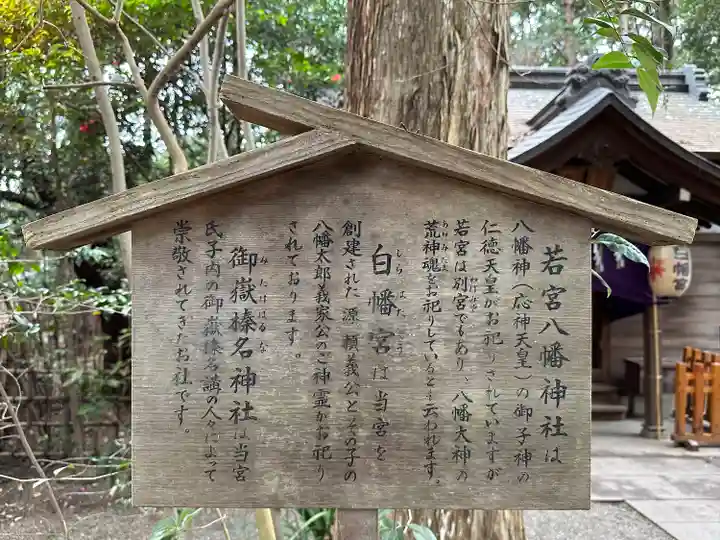 若宮八幡神社は
八幡神(応神天皇)の御子神の
仁徳天皇がお祀りされていますが
若宮は別宮でもあり、八幡大神の
荒神魂をお祀りしているとも云われます。
白幡宮は当宮を
創建された源頼義公とその子の
八幡太郎義家公のご神霊がお祀り
されております。
御嶽榛名神社は当宮
氏子内の御嶽榛名講の人々によって
崇敬されてきたお社です。
白幡宮